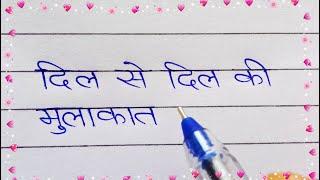 दिल से दिल की
मुलाकात